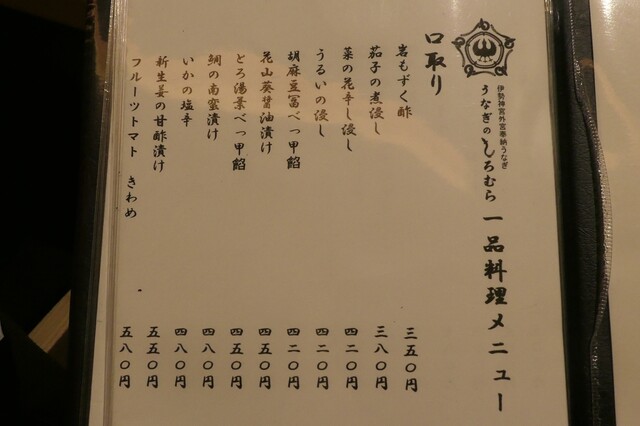 伊勢神宮外宮奉納うなぎ
うなぎのしろむら 一品料理メニュー
口取り
岩もずく酢 三五〇円
茄子の煮浸し 三八〇円
菜の花辛し浸し 四二〇円
うるいの浸し 四二〇円
胡麻豆冨べっ甲餡 四二〇円
花山葵醤油漬け 四五〇円
とろ湯葉べっ甲餡 四五〇円
鯛の南蜜漬け 四八〇円
いかの塩辛 四八〇円
新生姜の甘酢漬け 五五〇円
フルーツトマト きわめ 五八〇円